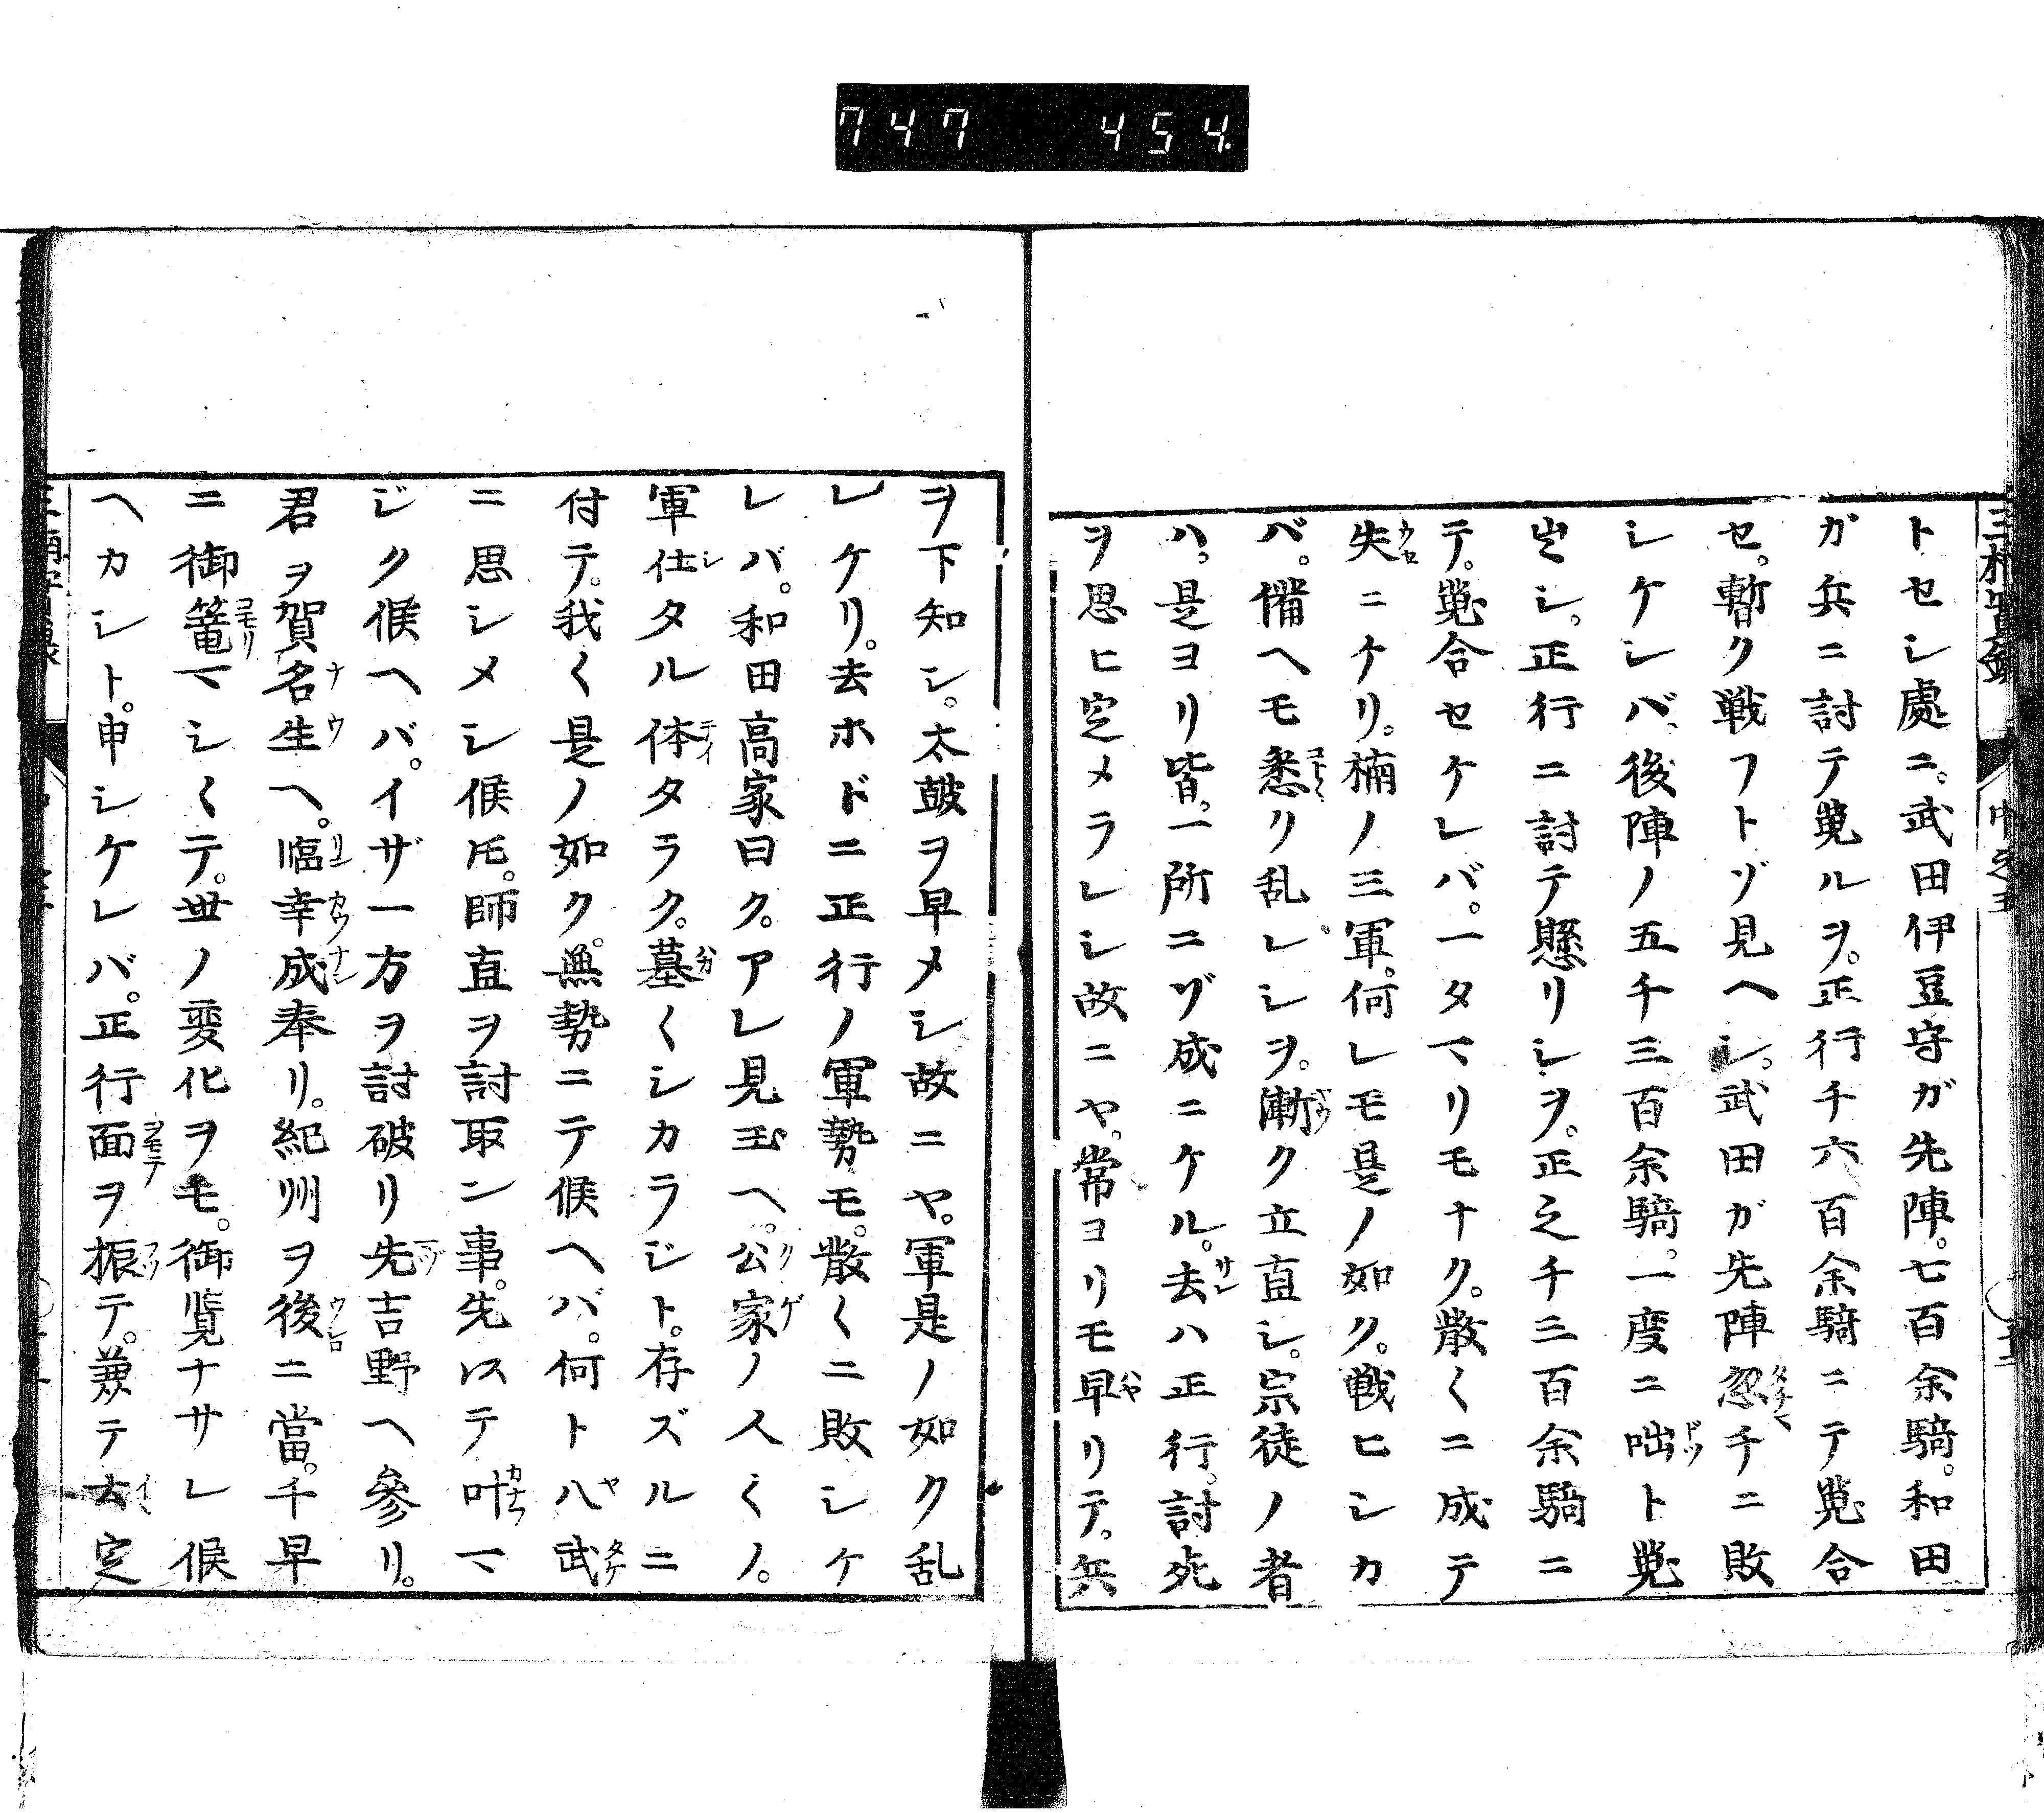 747 454.
トセシ處ニ。武田伊豆守ガ先陣。七百余騎。和田
ガ兵ニ討テ蒐ルヲ。正行千六百余騎ニテ蒐合
セ。暫ク戦フトゾ見ヘシ。武田ガ先陣忽チニ敗
シケレバ、後陣ノ五千三百余騎。一度ニ咄ト蒐
出シ。正行ニ討テ懸リシヲ。正之千三百余騎ニ
テ。蒐合セケレバ。一タマリモナク。散〱ニ成テ
失ニケリ。楠ノ三軍。何レモ是ノ如ク。戦ヒシカ
バ。備ヘモ悉リ乱レシヲ。漸ク立直シ。宗徒ノ者
ハ。是ヨリ皆。一所ニゾ成ニケル。去ハ正行。討死
ヲ思ヒ定メラレシ故ニヤ。常ヨリモ早リテ。兵
ヲ下知シ。太鼓ヲ早メシ故ニヤ。軍是ノ如ク乱
レケリ。去ホドニ正行ノ軍勢モ。散〱ニ敗シケ
レバ。和田高家曰ク。アレ見玉ヘ。公家ノ人〱ノ。
軍仕タル体タラク。墓〱シカラジト。存ズルニ
付テ。我〱是ノ如ク。無勢ニテ候ヘバ。何ト八武
ニ思シメシ候𪜈。師直ヲ討取ン事。先以テ叶マ
ジク候ヘバ。イザ一方ヲ討破リ先吉野ヘ參リ。
君ヲ賀名生ヘ。臨幸成奉リ。紀州ヲ後ニ當。千早
ニ御篭マシ〱テ。世ノ変化ヲモ。御覧ナサレ候
ヘカシト。申シケレバ。正行面ヲ振テ。兼テ去定